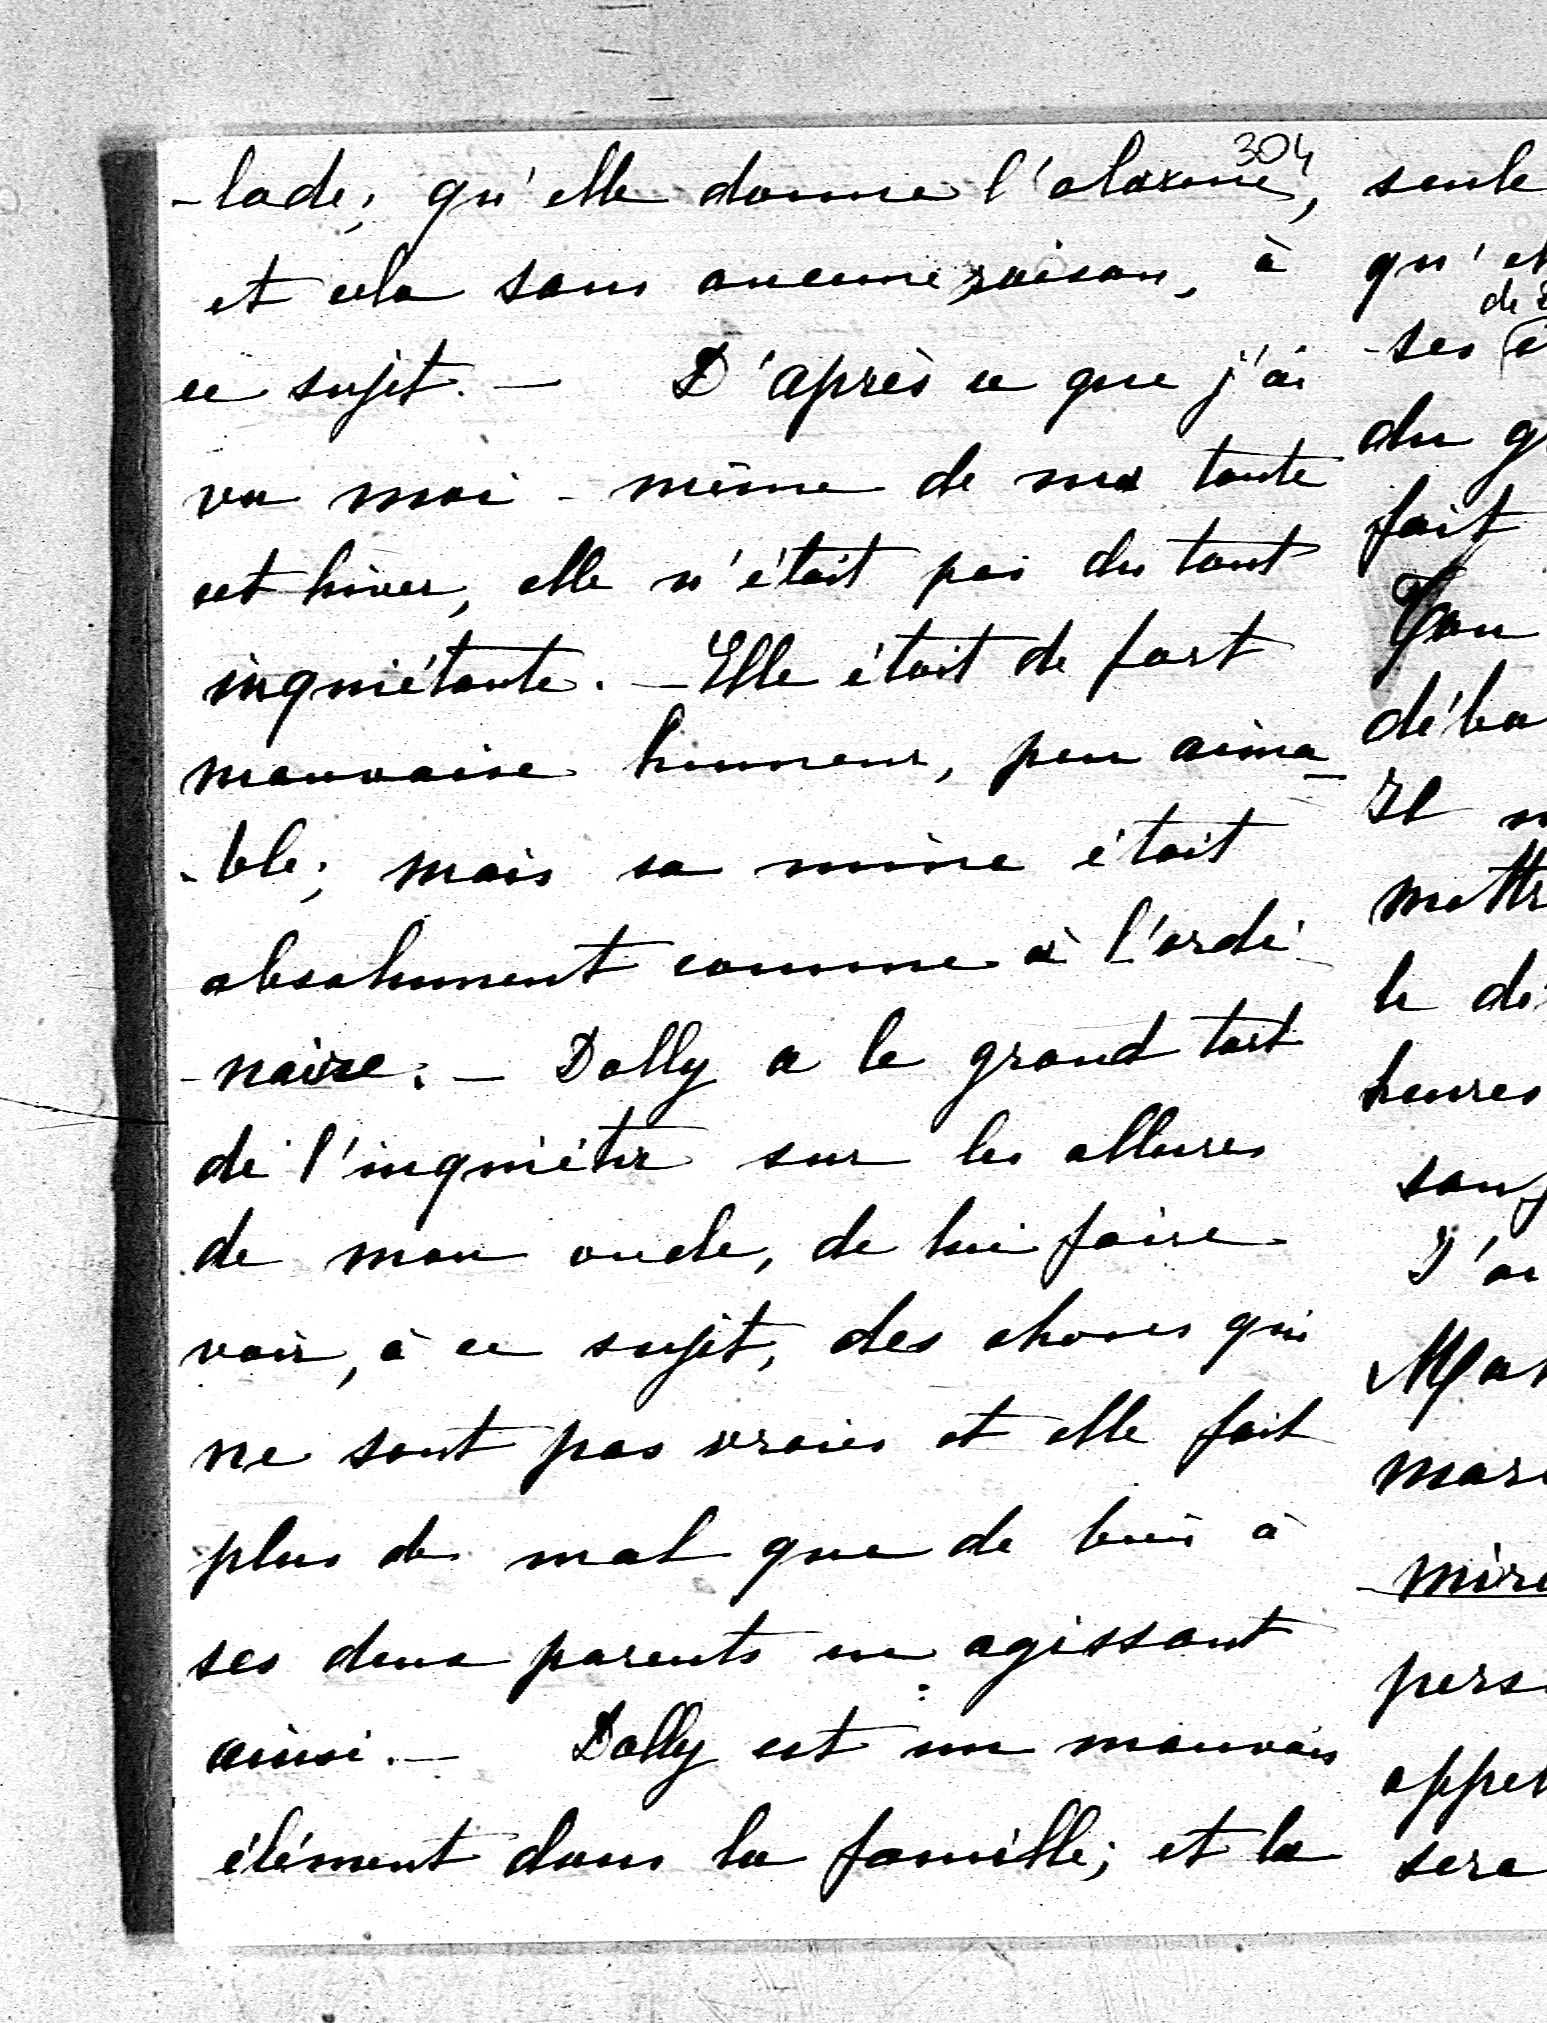 304
-lade; qu'elle donne l'alarme,
et cela sans aucune raison, à
ce sujet. — D'après ce que j'ai
vu moi-même de ma tante
cet hiver, elle n'était pas du tout
inquiétante. — Elle était de fort
mauvaise humeur, peu aima-
-ble; mais sa mine était
absolument comme à l'ordi-
-naire. — Dolly a le grand tort
de l'inquiéter sur les allures
de mon oncle, de lui faire
voir, à ce sujet, des choses qui
ne sont pas vraies et elle fait
plus de mal que de bien à
ses deux parents en agissant
ainsi. — Dolly est un mauvais
élément dans la famille; et la
seule
qu'el
de
-ses
du g
fait
déba
Il n
mettr
le dî
heures
sang
J'ai
Mar
mari
-mire
pers
apper
sera